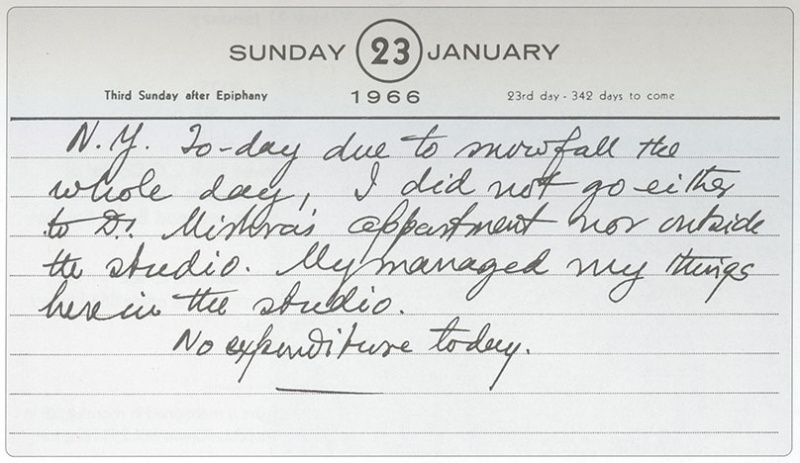 SUNDAY 23 JANUARY
Third Sunday after Epiphany 1966 23rd day - 342 days to come
N.Y. To-day due to snowfall the
whole day, I did not go either
to Dr. Mishra's appartment nor outside
the studio. My managed my things
here in the studio.
No expenditure today.